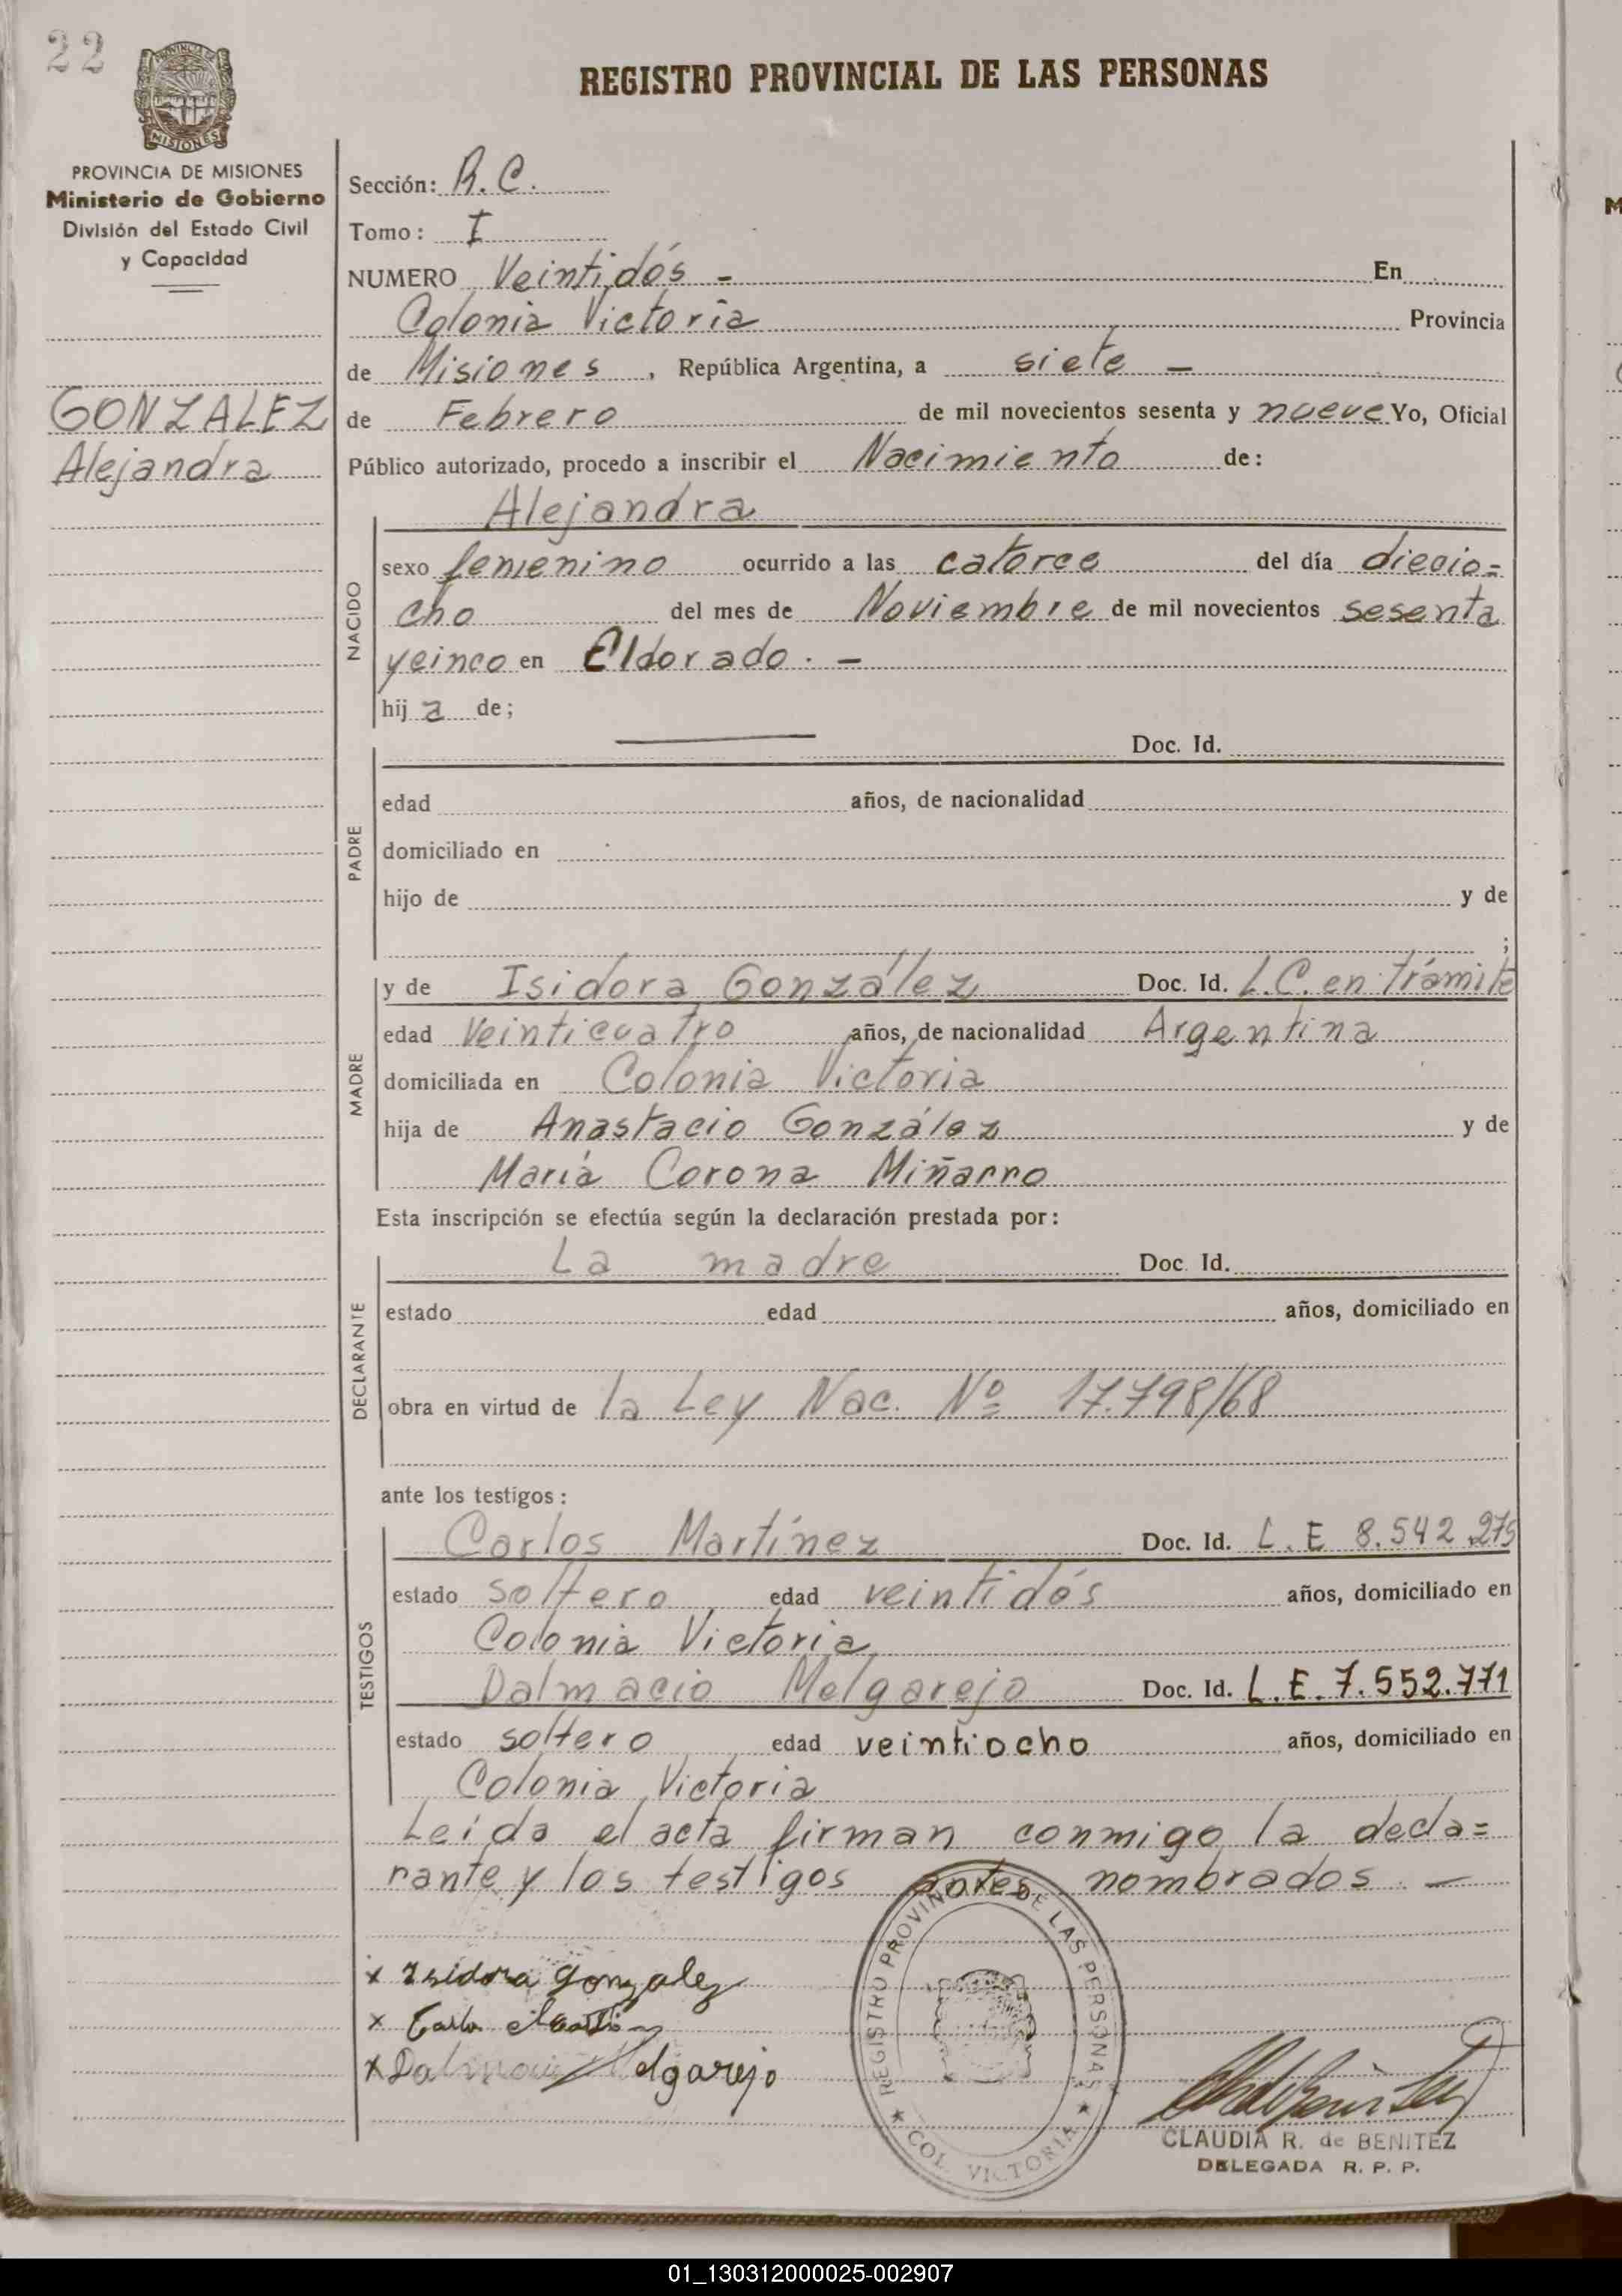 22
PROVINCIA DE MISIONES
Ministerio de Gobierno
División del Estado Civil
y Capacidad
GONZALEZ
Alejandra
REGISTRO PROVINCIAL DE LAS PERSONAS
Sección: R.C.
Tomo: I
NUMERO Veintidós - En
Colonia Victoria Provincia
de Misiones, República Argentina, a siete -
de Febrero de mil novecientos sesenta y nueve Yo, Oficial
Público autorizado, procedo a inscribir el Nacimiento de:
Alejandra
NACIDO
sexo femenino ocurrido a las catorce del día diecio=
cho del mes de Noviembre de mil novecientos sesenta
y cinco en Eldorado. -
hija de;
PADRE
Doc. Id.
edad años, de nacionalidad
domiciliado en
hijo de y de
;
MADRE
y de Isidora González Doc. Id. L.C. en trámite
edad Veinticuatro años, de nacionalidad Argentina
domiciliada en Colonia Victoria
hija de Anastacio González y de
María Corona Miñarro
Esta inscripción se efectúa según la declaración prestada por:
DECLARANTE
La madre Doc. Id.
estado edad años, domiciliado en
obra en virtud de la Ley Nac. Nº 17.798/68
ante los testigos:
TESTIGOS
Carlos Martínez Doc. Id. L.E 8.542.275
estado soltero edad veintidós años, domiciliado en
Colonia Victoria
Dalmacio Melgarejo Doc. Id. L.E. 7.552.771
estado soltero edad veintiocho años, domiciliado en
Colonia Victoria
Leída el acta firman conmigo la decla=
rante y los testigos antes nombrados. -
x Isidora gonzalez
x
x Dalmacio Melgarejo
REGISTRO PROVINCIAL DE LAS PERSONAS
COL. VICTORIA
CLAUDIA R. de BENITEZ
DELEGADA R. P. P.
01_130312000025-002907